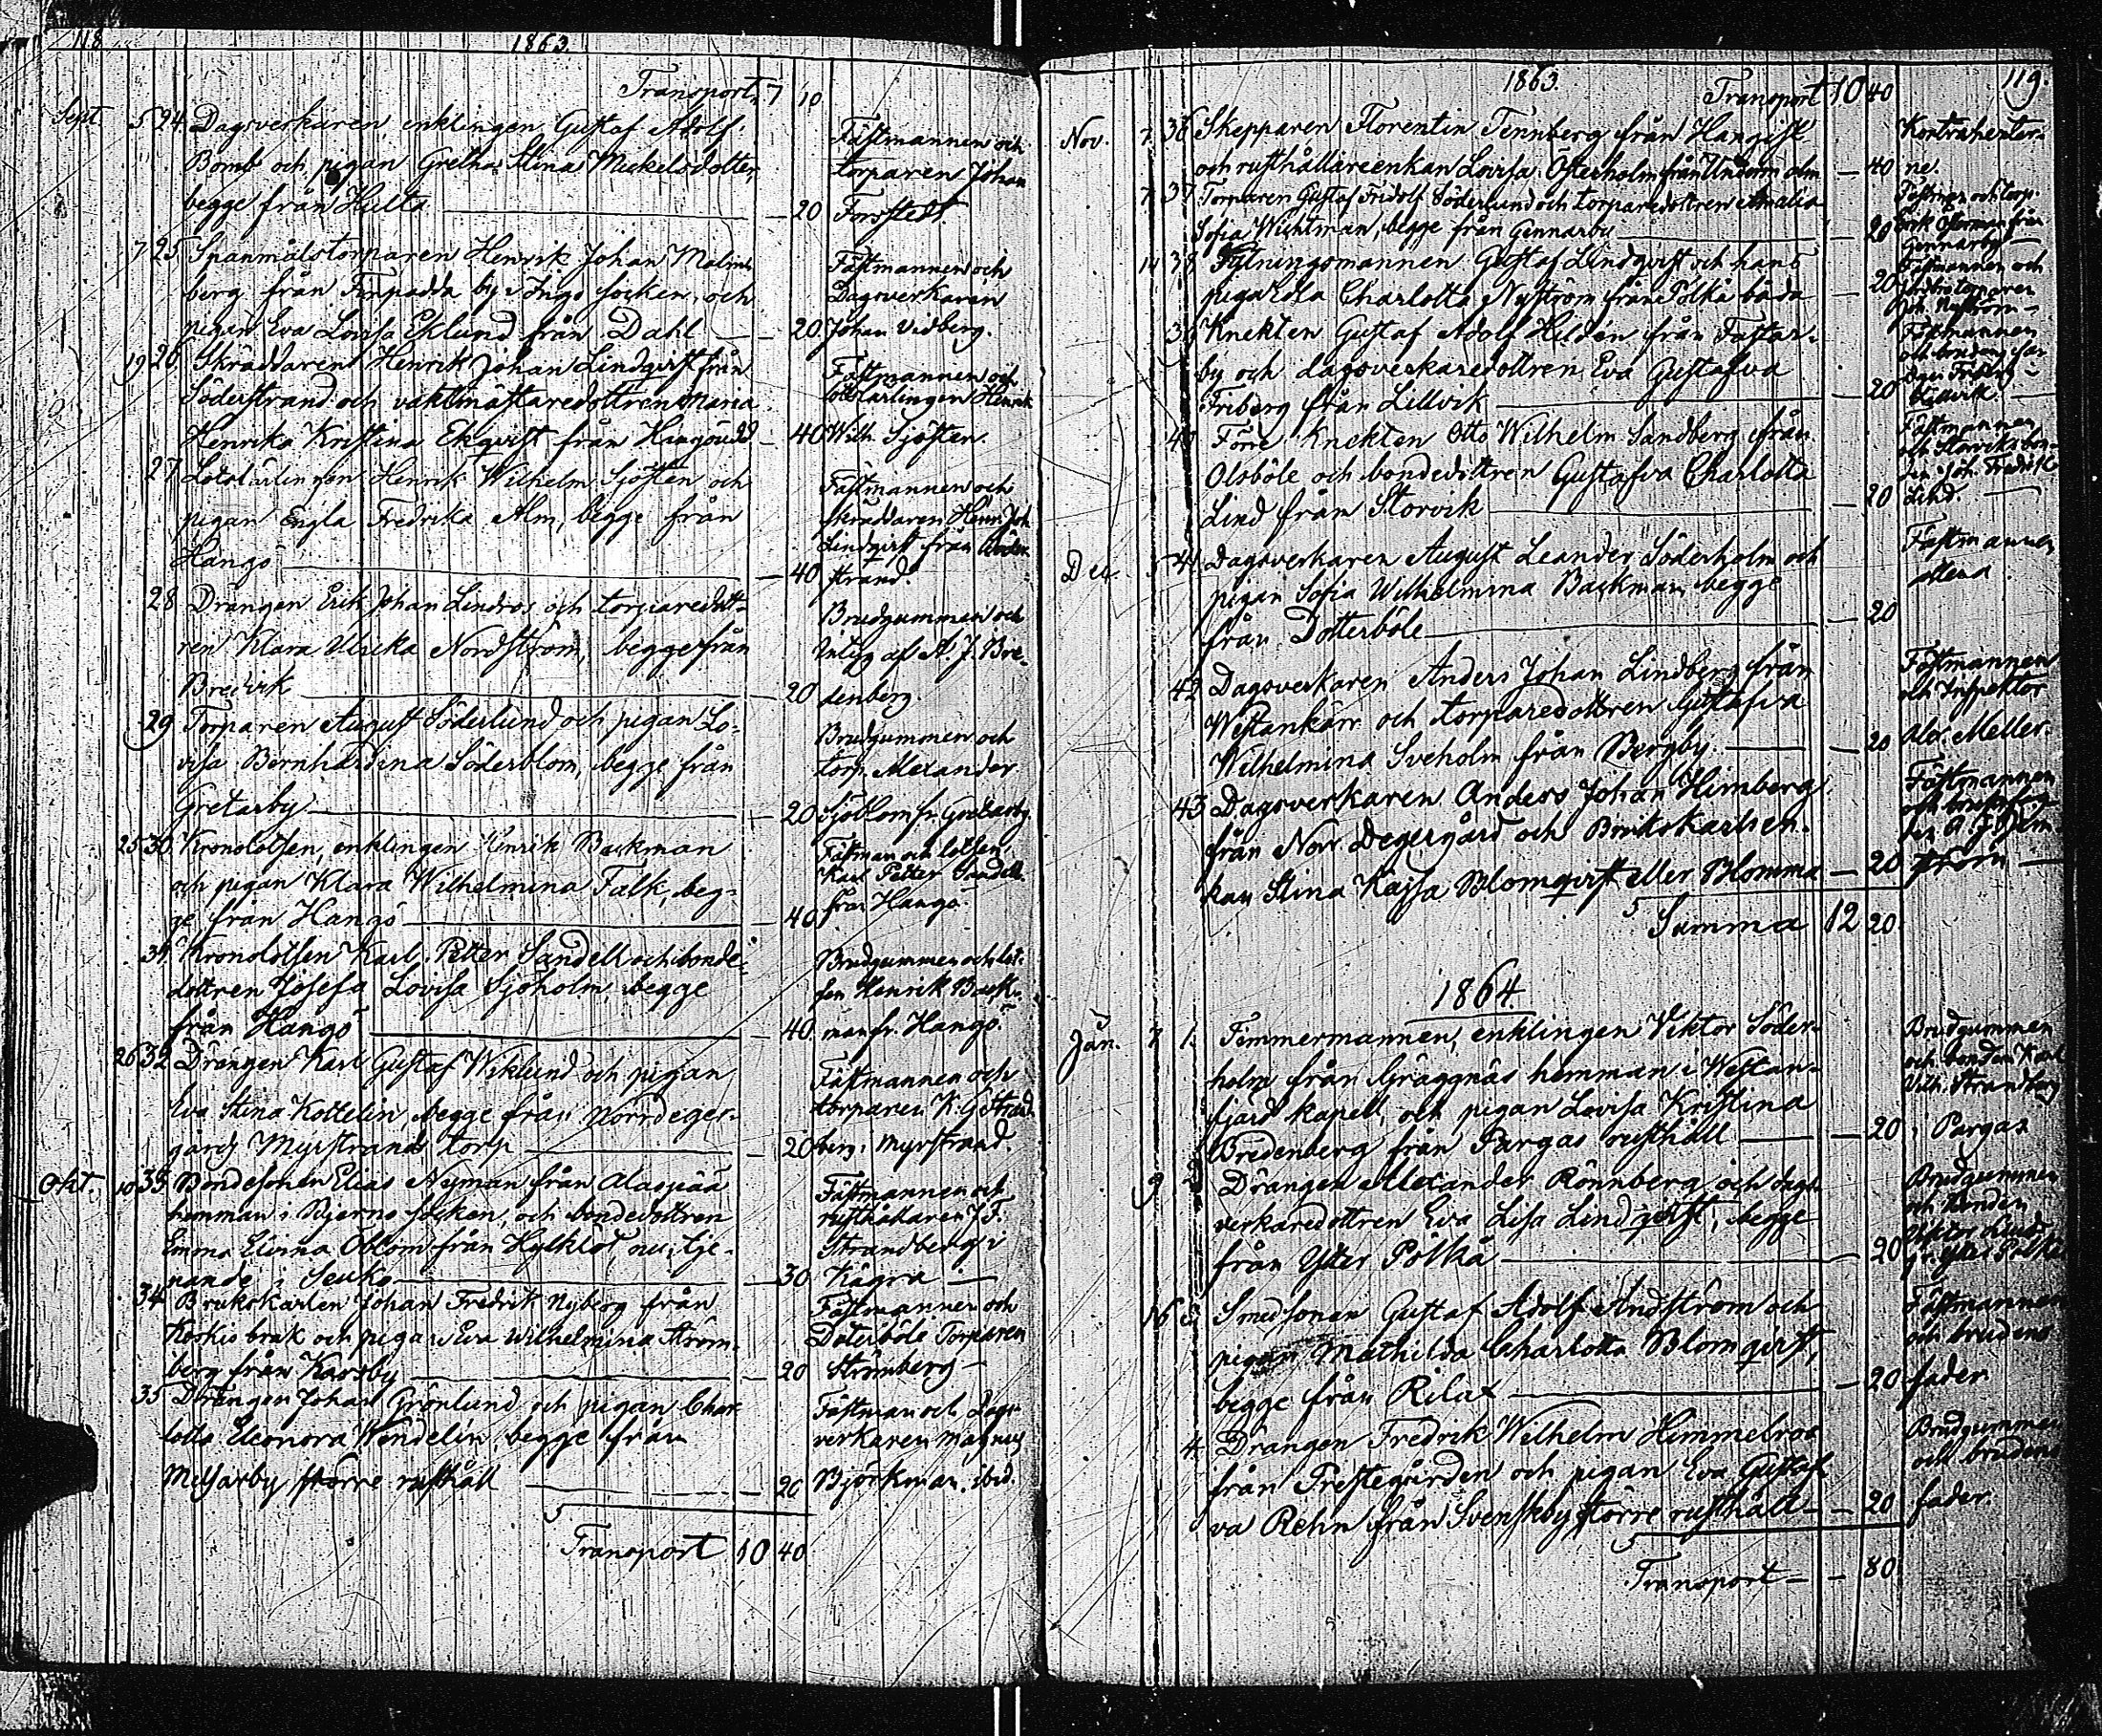 118
1863.
Transport 7 10
Sept. 5 24. Dagsverkaren, enklingen Gustaf Adolf
Bomb och pigan Gretha Stina Mickelsdotter,
begge från Hulta — 20
Fästmannen och
torparen Johan
Forstedt.
7 25 Spanmålstorparen Henrik Johan Malm-
berg från Finpadda by i Ingo socken, och
pigan Eva Lovisa Eklund från Dahl — 20
Fästmannen och
Dagsverkaren
Johan Vidberg.
19 26 Skräddaren Henrik Johan Lindqvist från
Söderstrand och vaktmästaredottren Maria
Henrika Kristina Ekqvist från Hangöudd — 40
Fästmannen och
lotslärlingen Henrik
Wilh. Sjösten.
27 Lotslärlingen Henrik Wilhelm Sjösten och
pigan Engla Fredrika Alm, begge från
Hangö — 40
Fästmannen och
skräddaren Henr. Joh.
Lindqvist från Söder-
strand
28 Drängen Erik Johan Lindros och torparedott-
ren Klara Ulrika Nordström, begge från
Bredvik — 20
Brudgummen och
Intyg af A. J. Bre-
denberg.
29 Torparen August Söderlund och pigan Lo-
visa Bernhardina Söderblom, begge från
Gretarby — 20
Brudgummen och
torp. Alexander
Sjöblom fr. Gretarby.
25 30. Kronolotsen, enklingen Henrik Backman
och pigan Klara Wilhelmina Falk, beg-
ge från Hangö — 40
Fästman och lotsen
Karl Petter Sandell
från Hangö.
31 Kronolotsen Karl Petter Sandell och bonde-
dottren Josefa Lovisa Sjöholm, begge
från Hangö — 40
Brudgummen och lot-
sen Henrik Back-
man fr. Hangö.
26 32 Drängen Karl Gustaf Wiklund och pigan
Eva Stina Kottelin, begge från Norrdeger-
gårds Myrstrands torp — 20
Fästmannen och
torparen K. G. Strand-
berg i Myrstrand.
Okt. 10 33 Bondesonen Elias Nyman från Alaspää
hemman i Bjerno socken, och bondedottren
Emma Elvina Oblom från Hylklot nu tje-
nande i Seuko — 30
Fästmannen och
rusthållaren J. F.
Strandberg i
Kägra —
34 Brukskarlen Johan Fredrik Nyberg från
Koskis bruk och pigan Eva Wilhelmina Ström-
berg från Karsby — 20
Fästmannen och
Doterböle Torparen
Strömberg —
35 Drängen Johan Grönlund och pigan Char-
lotta Eleonora Wendelin, begge från
större rusthåll — 20
Fästman och Dags-
verkaren Magnus
Björkman, ibid.
Transport 10 40
119.
1863.
Transport 10 40
Nov. 7 36 Skepparen Florentin Tennberg från
och rusthållareenkan Lovisa Österholm från — 40
Kontrahenter-
ne.
7 37 Torparen Gustaf Fridolf Söderlund och torparedottren Amalia
Sofia Wichtman, begge från Gennarby — 20
Fästman och torp.
Erik Österman från
Gennarby —
14 38 Gustaf Lindqvist och hans
piga Ulla Charlotta Nyström från Pölkä båda — 20
Fästmannen och
Joh. Nyström —
39 Knekten Gustaf Adolf Helden från Fastar-
by och dagsverkaredottren Eva Gustafva
Friberg från Lillvik — 20
Fästmannen
Friberg
40 Förre Knekten Otto Wilhelm Sandberg från
Olsböle och bondedottren Gustafva Charlotta
Lind från Storvik — 20
Fästmannen
och Storviks bon-
den Joh. Fredrik
Lind. —
Dec. 5 41. Dagsverkaren August Leander Söderholm och
pigan Sofia Wilhelmina Backman, begge
från Dotterböle — 20
Fästmannen
allena
42 Dagsverkaren Anders Johan Lindberg från
Westankärr och torparedottren Gustafva
Wilhelmina Sveholm från Bergby — 20
Fästmannen
och Inspektor
Alex. Meller.
43 Dagsverkaren Anders Johan Himberg
från Norr Degergård och Brukskarlsen-
kan Stina Kajsa Blomqvist eller Blomma — 20
Fästmannen
Summa 12 20
1864.
Jan. 7 1. Timmermannen, enklingen Viktor Söder-
holm från Gräggnäs hemman i Westan-
fjärd kapell, och pigan Lovisa Kristina
Bredenberg från Pargas rusthåll — 20
Brudgummen
och bonden Karl
Vilh. Strandberg
i Pargas
9 2 Drängen Alexander Rönnberg och dags-
verkaredottren Eva Lisa Lindqvist, begge
från Ytter Pölkä — 20
Brudgummen
och Bonden
Viktor Lind-
fr. Ytter Pölkä
16 3. Smedsonen Gustaf Adolf Andström och
pigan Mathilda Charlotta Blomqvist,
begge från Rilax — 20
Fästmannen
och brudens
fader.
4. Drängen Fredrik Wilhelm Himmelroos
från Prestegården och pigan Eva Gustaf-
va Rehn från Svenskby större rusthåll — 20
Brudgummen
och brudens
fader.
Transport — 80